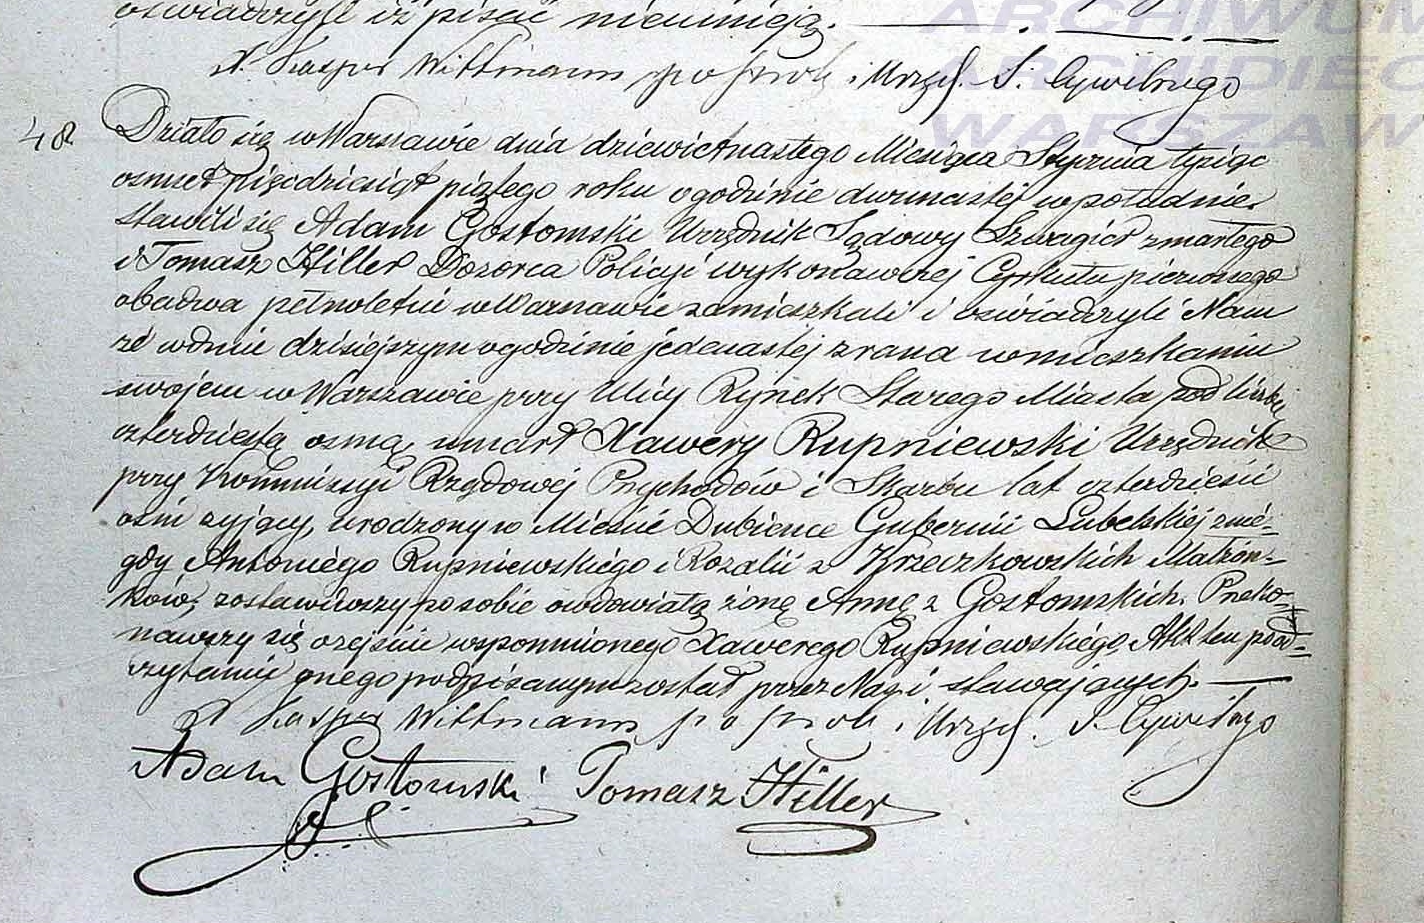 oświadczyli iż pisać nieumieją.
X. Kasper Wittmann i Urzęd. S. Cywilnego
48. Działo się w Warszawie dnia dziewiętnastego Miesiąca Stycznia tysiąc
osmset pięcdziesiąt piątego roku o godzinie dwunastej w południe
stawili się Adam Gostomski Urzędnik Sądowy Szwagier zmarłego
i Tomasz Hiller Dozorca Policyi wykonawczej Cyrkułu pierwszego
obadwa pełnoletni w Warszawie zamieszkali i oświadczyli Nam
że w dniu dzisiejszym o godzinie jedenastej z rana w mieszkaniu
swojem w Warszawie przy Ulicy Rynek Starego Miasta pod liczbą
czterdziestą osmą, umarł Xawery Rupniewski Urzędnik
przy Kommissyi Rządowej Przychodów i Skarbu lat czterdzieści
ośm żyjący, urodzony w Mieście Dubience Gubernii Lubelskiej z nie-
gdy Antoniego Rupniewskiego i Rozalii z Krzeczkowskich Małżon-
ków, zostawiwszy po sobie owdowiałą żonę Annę z Gostomskich. Przeko-
nawszy się o zejściu wspomnionego Xawerego Rupniewskiego, Akt ten po od-
czytaniu onego podpisanym został przez Nas i stawających.
X Kasper Wittmann i Urzęd. S. Cywilnego
Adam Gostomski Tomasz Hiller
ARCHIWUM
ARCHIDIEC
WARSZAW